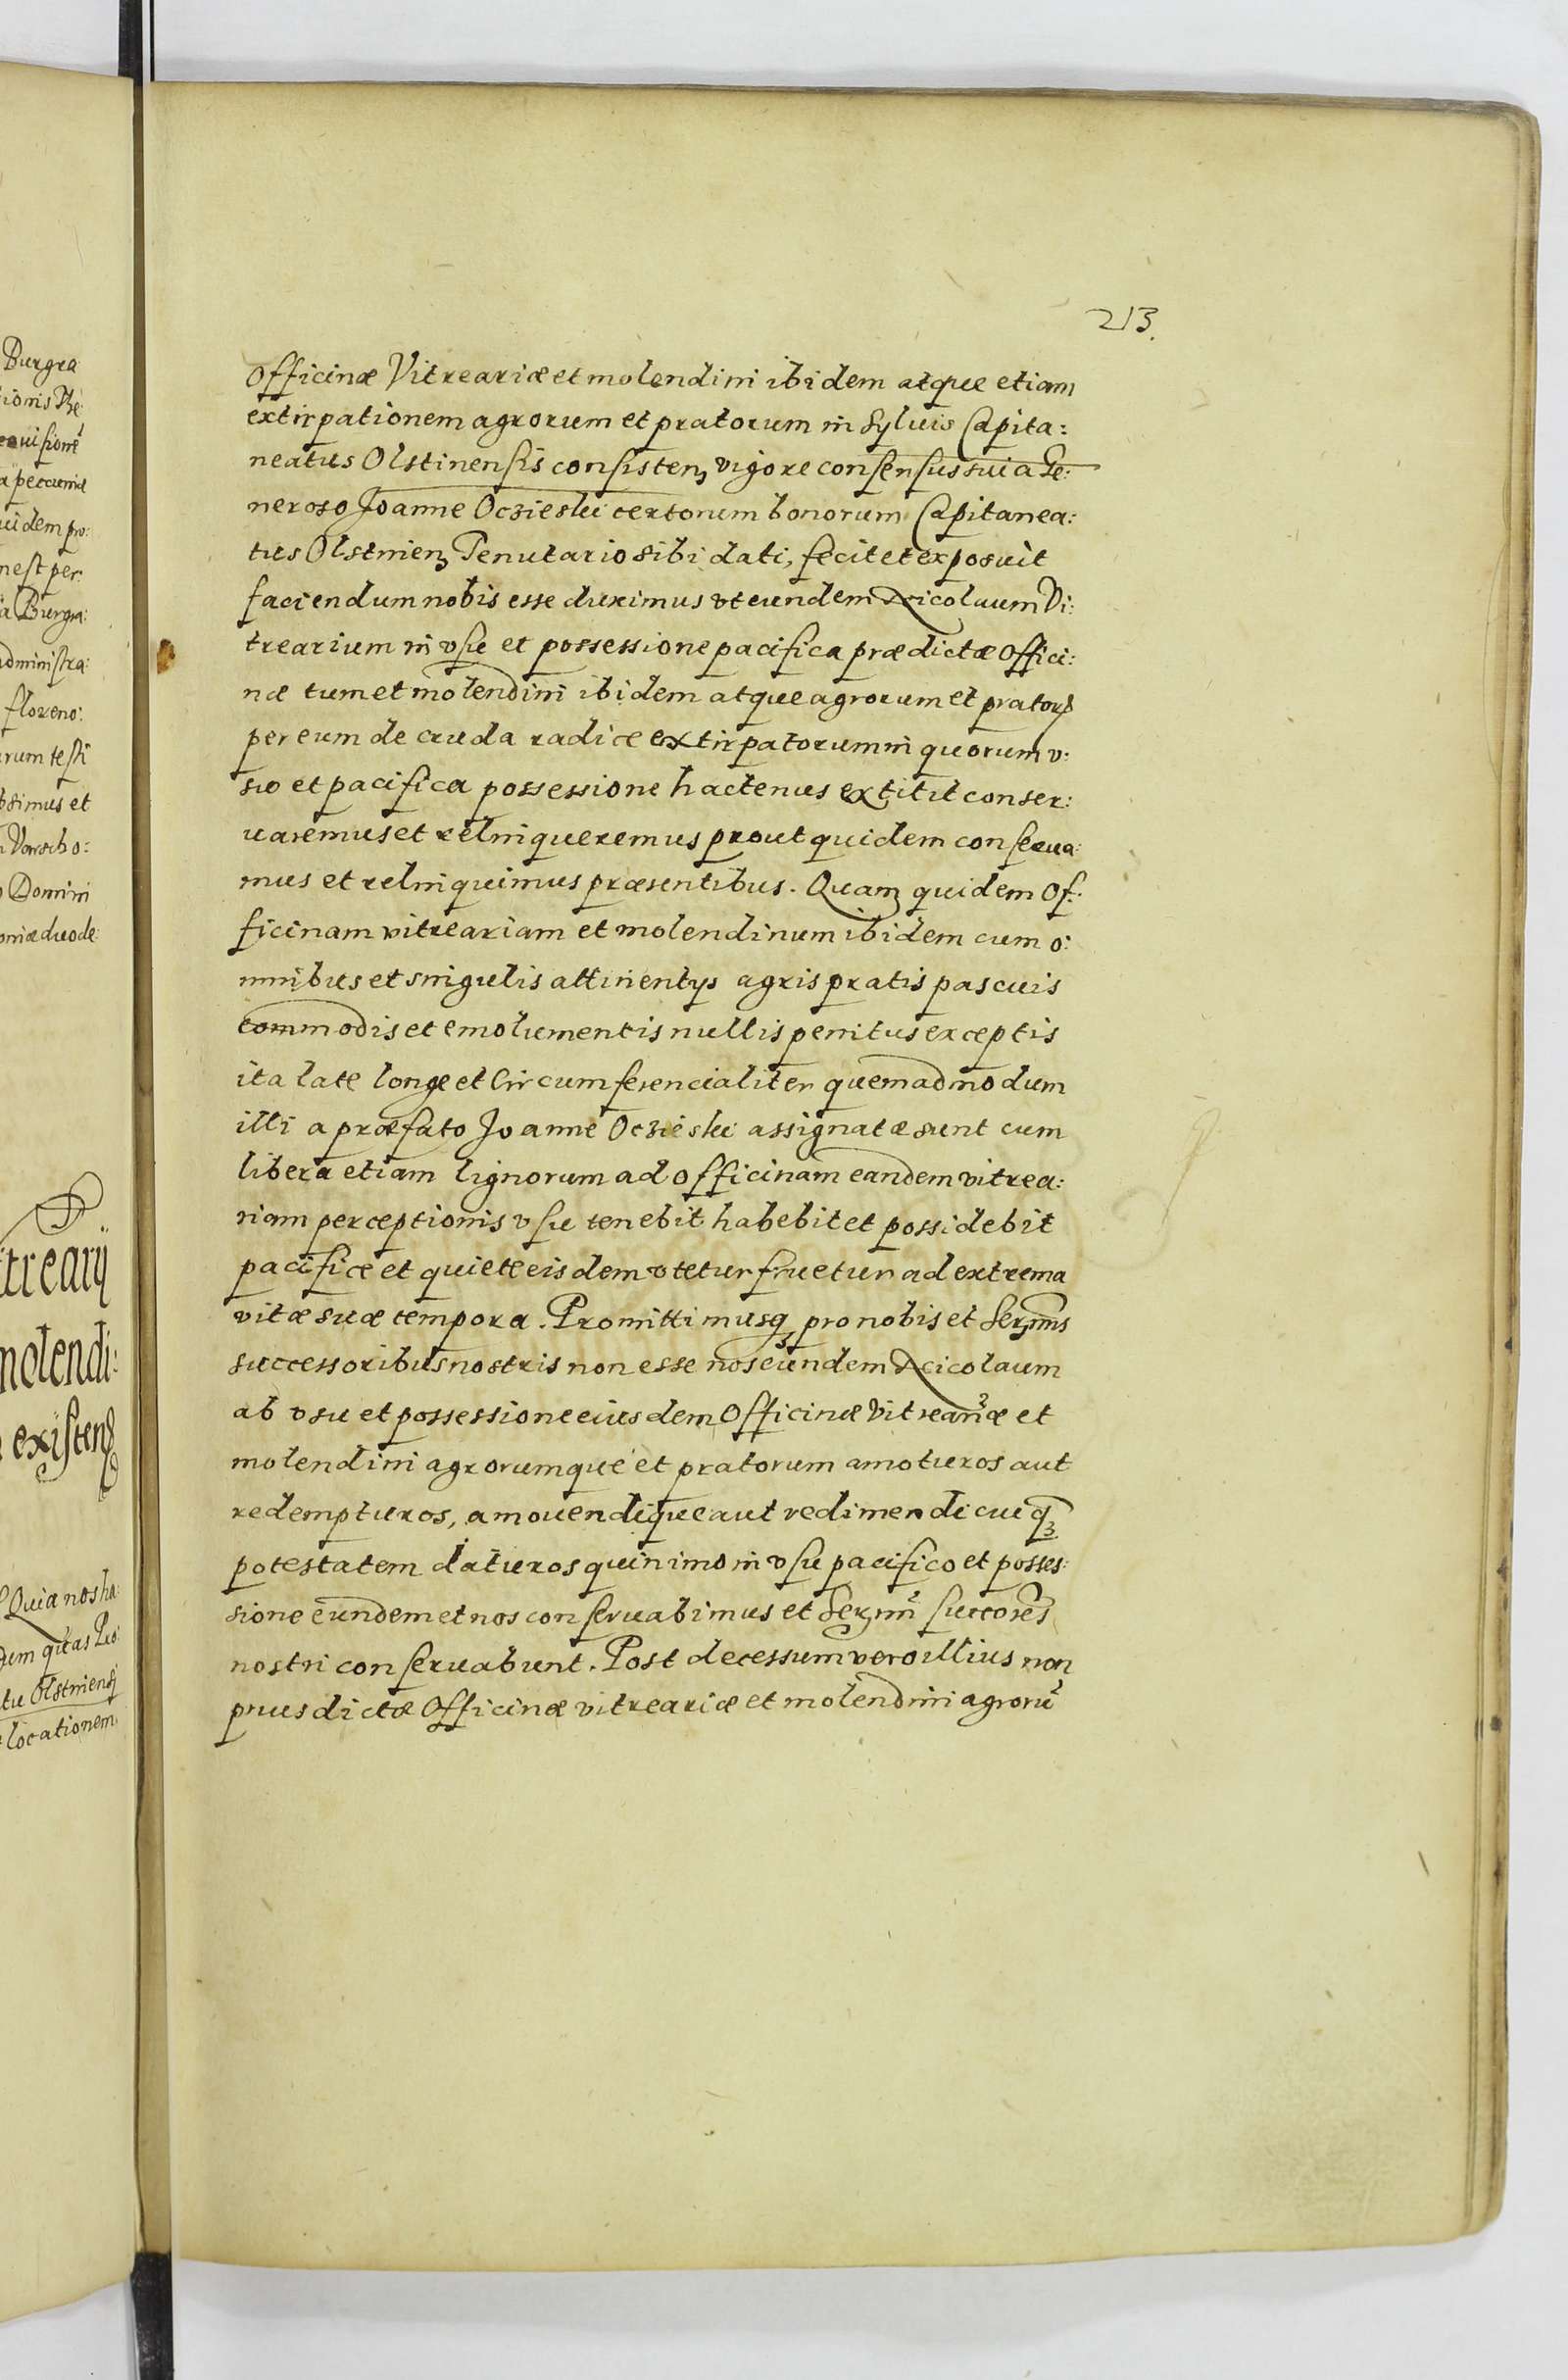 213.
officinæ Vitreariæ et molendini ibidem atque etiam
extirpationem agrorum et pratorum in sylvis Capita:
neatus Olstinensis consisten̄ vigore consensus sui a Ge:
neroso Joanne Oczieski certorum bonorum Capitanea:
tus Olstinen̄ Tenutario sibi dati, fecit et exposuit
faciendum nobis esse duximus vt eundem Nicolaum Vi:
trearium in vsu et possessione pacifica prædictæ offici:
næ tum et molendini ibidem atque agrorum et pratorꝝ
per eum de cruda radice extirpatorum in quorum v:
su et pacifica possessione hactenus extitit conser:
uaremus et relinqueremus prout quidem conserua:
mus et relinquimus præsentibus. Quam quidem Of:
ficinam vitreariam et molendinum ibidem cum o:
mnibus et singulis attinentijs agris pratis pascuis
commodis et emolumentis nullis penitus exceptis
ita late longe et circumferencialiter quemadmodum
illi a præfato Joanne Oczieski assignatæ sunt cum
libera etiam lignorum ad officinam eandem vitrea:
riam perceptionis vsu tenebit habebit et possidebit
pacifice et quiete eisdem vtetur fruetur ad extrema
vitæ suæ tempora. Promittimusqꝫ pro nobis et Serꝫmis
successoribus nostris non esse nos eundem Nicolaum
ab vsu et possessione eiusdem Officinæ Vitreariæ et
molendini agrorumque et pratorum amoturos aut
redempturos, amouendique aut redimendi cuiqꝫ
potestatem daturos quinimo in vsu pacifico et posses:
sione eundem et nos conseruabimus et Serꝫmi succorēs
nostri conseruabunt. Post decessum vero illius non
prius dictæ Officinæ vitreariæ et molendini agrorū
Burgra
pecuniæ
uidem pro:
n est per
a Burgra:
dministra:
floreno:
rum testi
simus et
Domini
duode
trearij
molendi:
existen
Quia nos ha
locationem